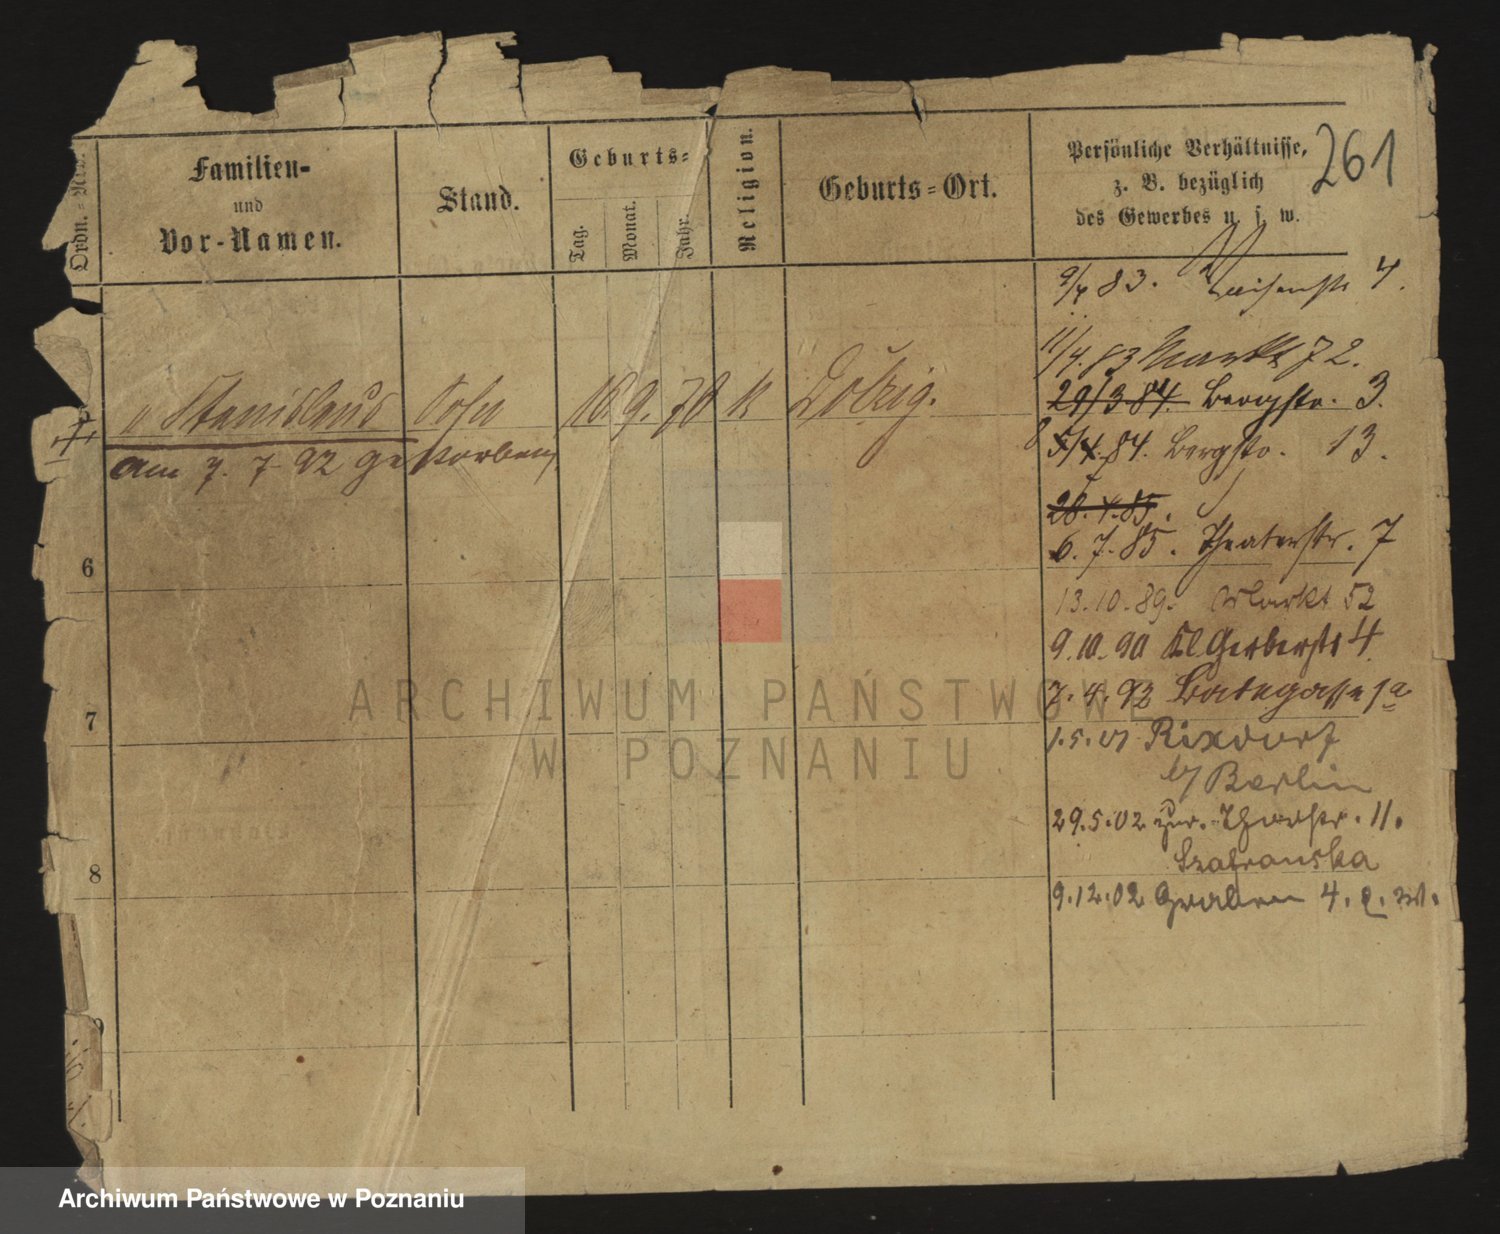 Ordn.=Nr.
Familien-
und
Vor-Namen.
Stand.
Geburts=
Tag.
Monat.
Jahr.
Religion.
Geburts=Ort.
Persönliche Verhältnisse,
z. B. bezüglich
des Gewerbes u. s. w.
261
9/4 83. Waisenstr 4.
11/4. 83 Markt 72.
" Stanislaus Sohn 10 9. 70 k Dolzig.
29/3 84. Bergstr. 3.
am 7. 7. 92 gestorben
84. Bergstr. 13.
28. 4. 85.
6. 7. 85. Theaterstr. 7
6
13. 10. 89. Markt 52
9. 10. 90 Kl. Gerberstr 4
7. 4. 92 1a
7
1. 5. 01 Rixdorf
b/ Berlin
29. 5. 02 zur. Thorstr. 11.
Szafranska
8
9. 12. 02 Graben 4.
9
ARCHIWUM PAŃSTWOWE
W POZNANIU
Archiwum Państwowe w Poznaniu